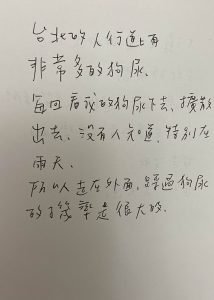 台北的人行道上有
非常多的狗尿.
每回有狗尿下去、擴散
出去、沒有人知道,特別在
雨天.
所以走在外面,踩過狗尿
的機率是很大的.